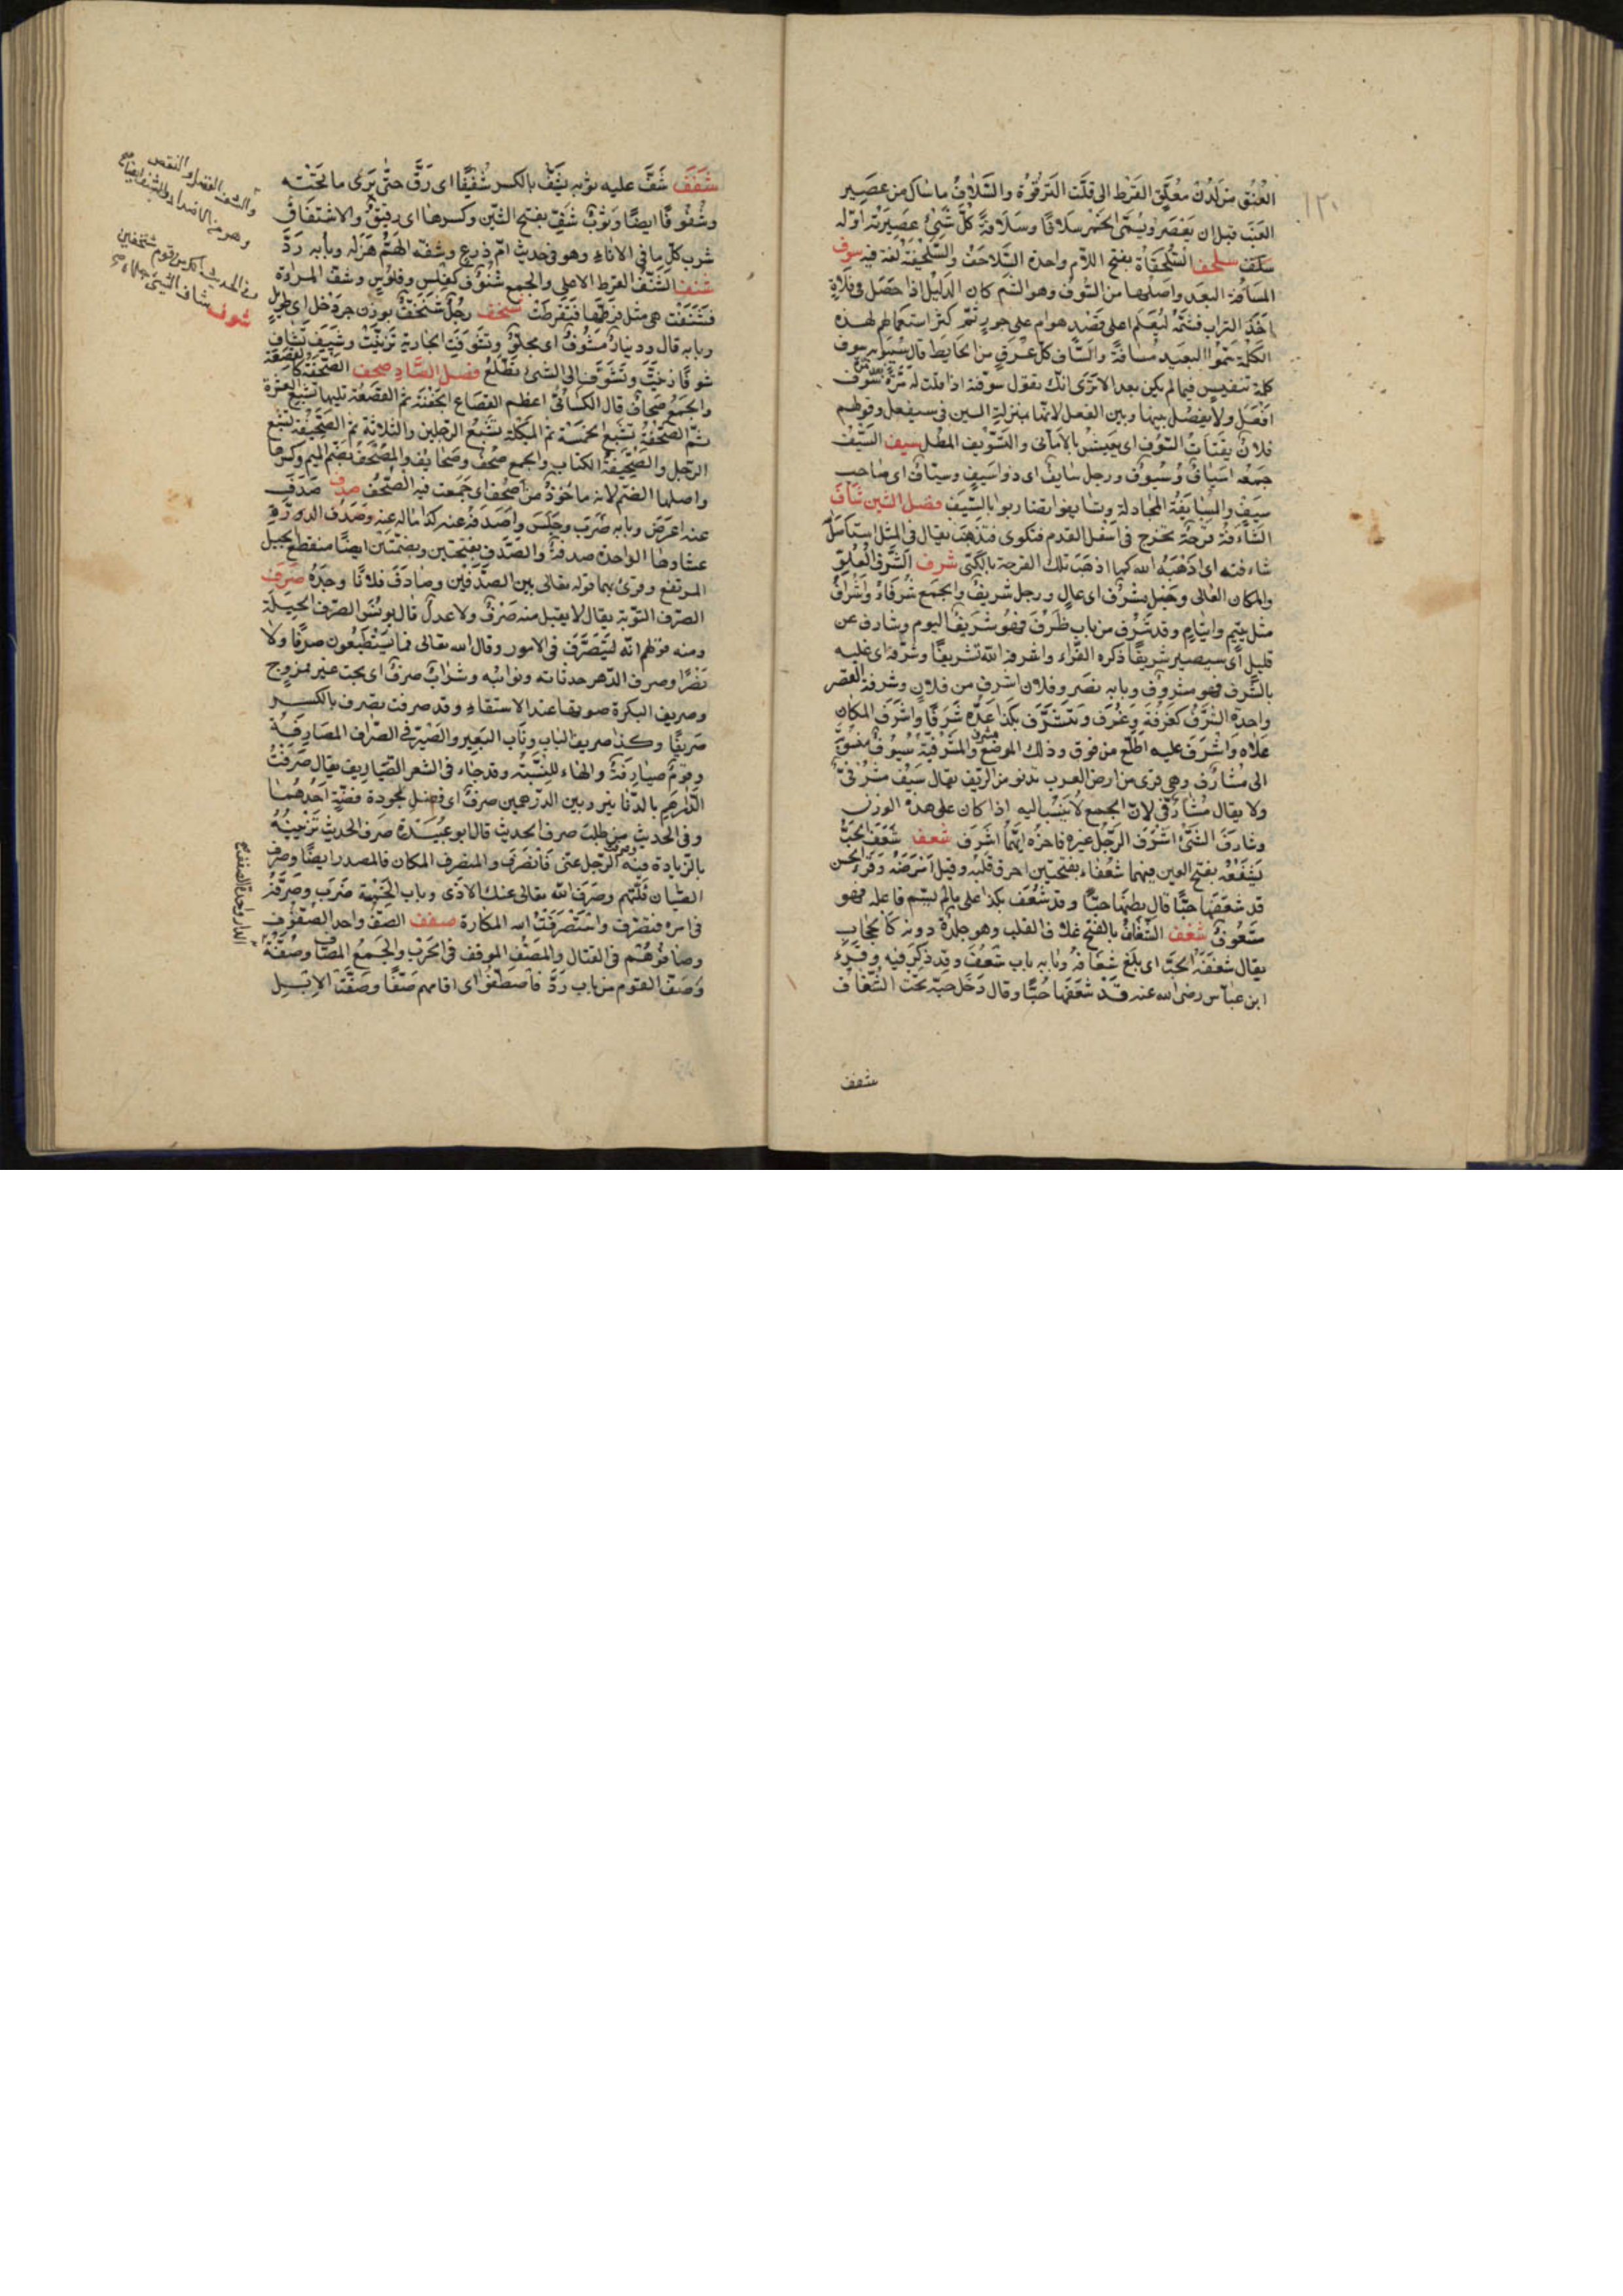 ١٢٠
العُنُق من لدن معلّق القرط الى قلت الترقوة والسّلاف ما سال من عصير
العنب قبل ان يعصر ويسمّى الخمر سلافا وسلافة كلّ شئ عصيرته اوّله
سلف سلحف السّلحفاة بفتح اللام واحدة السّلاحف والسّلحفية لغة فيه سوف
المسافة البعد واصلها من السّوف وهو الشم كان الدليل اذا حصل فى فلاة
اخذ التراب فشمّه ليعلم اعلى قصد هو ام على جور ثم كثر استعمالهم لهذه
الكلمة حتى سمّوا البعيد مسافة والسّاف كلّ عرق من الحايط قال سيبويه سوف
كلمة تنفيس فيما لم يكن بعد الا ترى انك تقول سوّفته اذا قلت له مرّة بعد مرّة سوف
افعل ولا يفصل بينها وبين الفعل لانها بمنزلة السين فى سيفعل وقولهم
فلان يقتات السّوف اى يعيش بالامانى والتّسويف المطل سيف السّيف
جمعه اسياف وسيوف ورجل سايف اى ذو سيف وسيّاف اى صاحب
سيف والمسايفة المجادلة وتسايفوا تضاربوا بالسّيف فصل الشين شأف
الشّأفة قرحة تخرج فى اسفل القدم فتكوى فتذهب يقال فى المثل استأصل
شأفته اى اذهبه الله كما اذهب تلك القرحة بالكىّ شرف الشّرف العلوّ
والمكان العالى وجبل مشرف اى عال ورجل شريف والجمع شرفاء واشراف
مثل يتيم وايتام وقد شرف من باب ظرف فهو شريف اليوم وشارف عن
قليل اى سيصير شريفا ذكره الفرّاء واشرفه الله تشريفا وشرفه اى غلبه
بالشّرف فهو مشروف وبابه نصر وفلان اشرف من فلان وشرفة القصر
واحدة الشّرف كغرفة وغرف وتشرّف بكذا عدّه شرفا واشرف المكان
علاه واشرف عليه اطّلع من فوق وذلك الموضع مشرف والمشرفية سيوف منسوبة
الى مشارف وهى قرى من ارض العرب تدنو من الريف يقال سيف مشرفىّ
ولا يقال مشارفىّ لانّ الجمع لا ينسب اليه اذا كان على هذا الوزن
وشارف الشئ اشرف الرّجل غيره فاخره ايّهما اشرف شعف شعفه الحبّ
يشعفه بفتح العين فيهما شعفا بفتحتين احرق قلبه وقيل امرضه وقرأ الحسن
قد شعفها حبّا قال بطنها حبّا وقد شعف بكذا على ما لم يسمّ فاعله فهو
مشعوف شغف الشّغاف بالفتح غلاف القلب وهو جلدة دونه كالحجاب
يقال شغفه الحبّ اى بلغ شغافه وبابه باب شعف وقد ذكر فيه وقرء
ابن عباس رضى الله عنه قد شغفها حبّا وقال دخل حبّه تحت الشّغاف
شفف
شفف شفّ عليه ثوبه يشفّ بالكسر شفيفا اى رقّ حتّى يرى ما تحته
وشفوفا ايضا وثوب شفّ بفتح الشّين وكسرها اى رقيق والاشتفاف
شرب كلّ ما فى الاناء وهو فى حديث امّ زرع وشفّه الهمّ هزله وبابه ردّ
شنف الشّنف القرط الاعلى والجمع شنوف كفلس وفلوس وشنف المراة
فتشنّفت هى مثل قرّطها فتقرّطت شنخف رجل شنخف بوزن جردحل اى طويل
وبابه قال ودينار مشوف اى مجلوّ وتشوّفت الجارية تزيّنت وشيفت تشاف
شوفا زيّنت وتشوّف الى الشئ تطلّع فصل الصّاد صحف الصّحفة كالقصعة
والجمع صحاف قال الكسائى اعظم القصاع الجفنة ثم القصعة تليها تشبع العشرة
ثمّ الصّحفة تشبع الخمسة ثم المئكلة تشبع الرجلين والثلاثة ثم الصّحيفة تشبع
الرّجل والصّحيفة الكتاب والجمع صحف وصحايف والمصحف بضم الميم وكسرها
واصلها الضم لانه ماخوذ من اصحف اى جمعت فيه الصّحف صدف صدف
عنه اعرض وبابه ضرب وجلس واصدفه عنه كذا اماله عنه وصدف الدّرّة
غشاؤها الواحدة صدفة والصّدف بفتحتين وبضمّتين ايضا منقطع الجبل
المرتفع وقرئ بهما قوله تعالى بين الصدفين وصادف فلانا وجده صرف
الصرف التوبة يقال لا يقبل منه صرف ولا عدل قال يونس الصرف الحيلة
ومنه قولهم انّه ليتصرّف فى الامور وقال الله تعالى فما تستطيعون صرفا ولا
نصرا وصرف الدّهر حدثانه ونوائبه وشراب صرف اى بحت غير ممزوج
وصريف البكرة صوتها عند الاستقاء وقد صرفت تصرف بالكسر
صريفا وكذا صريف الباب وناب البعير والصّيرفى الصّراف المصارفة
وقوم صيارفة والهاء للنسبة وقد جاء فى الشعر الصّياريف يقال صرفت
الدّراهم بالدنانير وبين الدرهمين صرف اى فضل لجودة فضّة احدهما
وفى الحديث من طلب صرف الحديث قال ابو عبيدة صرف الحديث تزيينه
بالزيادة فيه وصرفت الرّجل عنى فانصرف والمنصرف المكان والمصدر ايضا وصرف
الصّبيان قلبهم وصرف الله تعالى عنك الاذى وباب الخمسة ضرب وصرّفه
فى امره فتصرّف واستصرفت الله المكاره صفف الصّفّ واحد الصّفوف
وصافّوهم فى القتال والمصفّ الموقف فى الحرب والجمع المصافّ وصفّة
وصفّ القوم من باب ردّ فاصطفّوا اى اقامهم صفّا وصفّت الابل
والشف الفضل والنقص
وهو من الاضداد والشف ايضا
شوف شاف الشئ جلاه
الدار واحدة الصفف